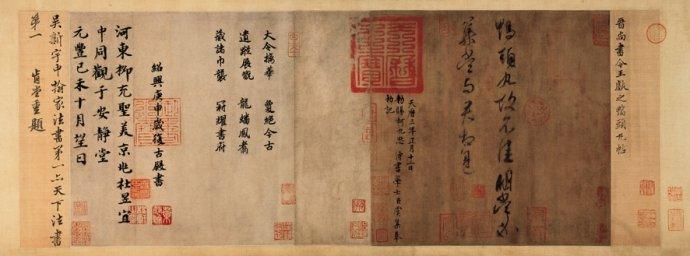 晉尚書令王獻之鴨頭丸帖
鴨頭丸故不佳明當必
集當與君相見
天曆三年正月十二日
勑賜柯九思 侍書學士臣虞集奉
勑記
大令摛華 夐絕今古
遺蹤展翫 龍蟠鳳翥
藏諸巾襲 冠耀書府
紹興庚申歲復古殿書
河東柳充聖美京兆杜昱宜
中同觀于安靜堂
元豐己未十月望日
吳新宇中翰家法書第一亦天下法書
第一 肯堂重題